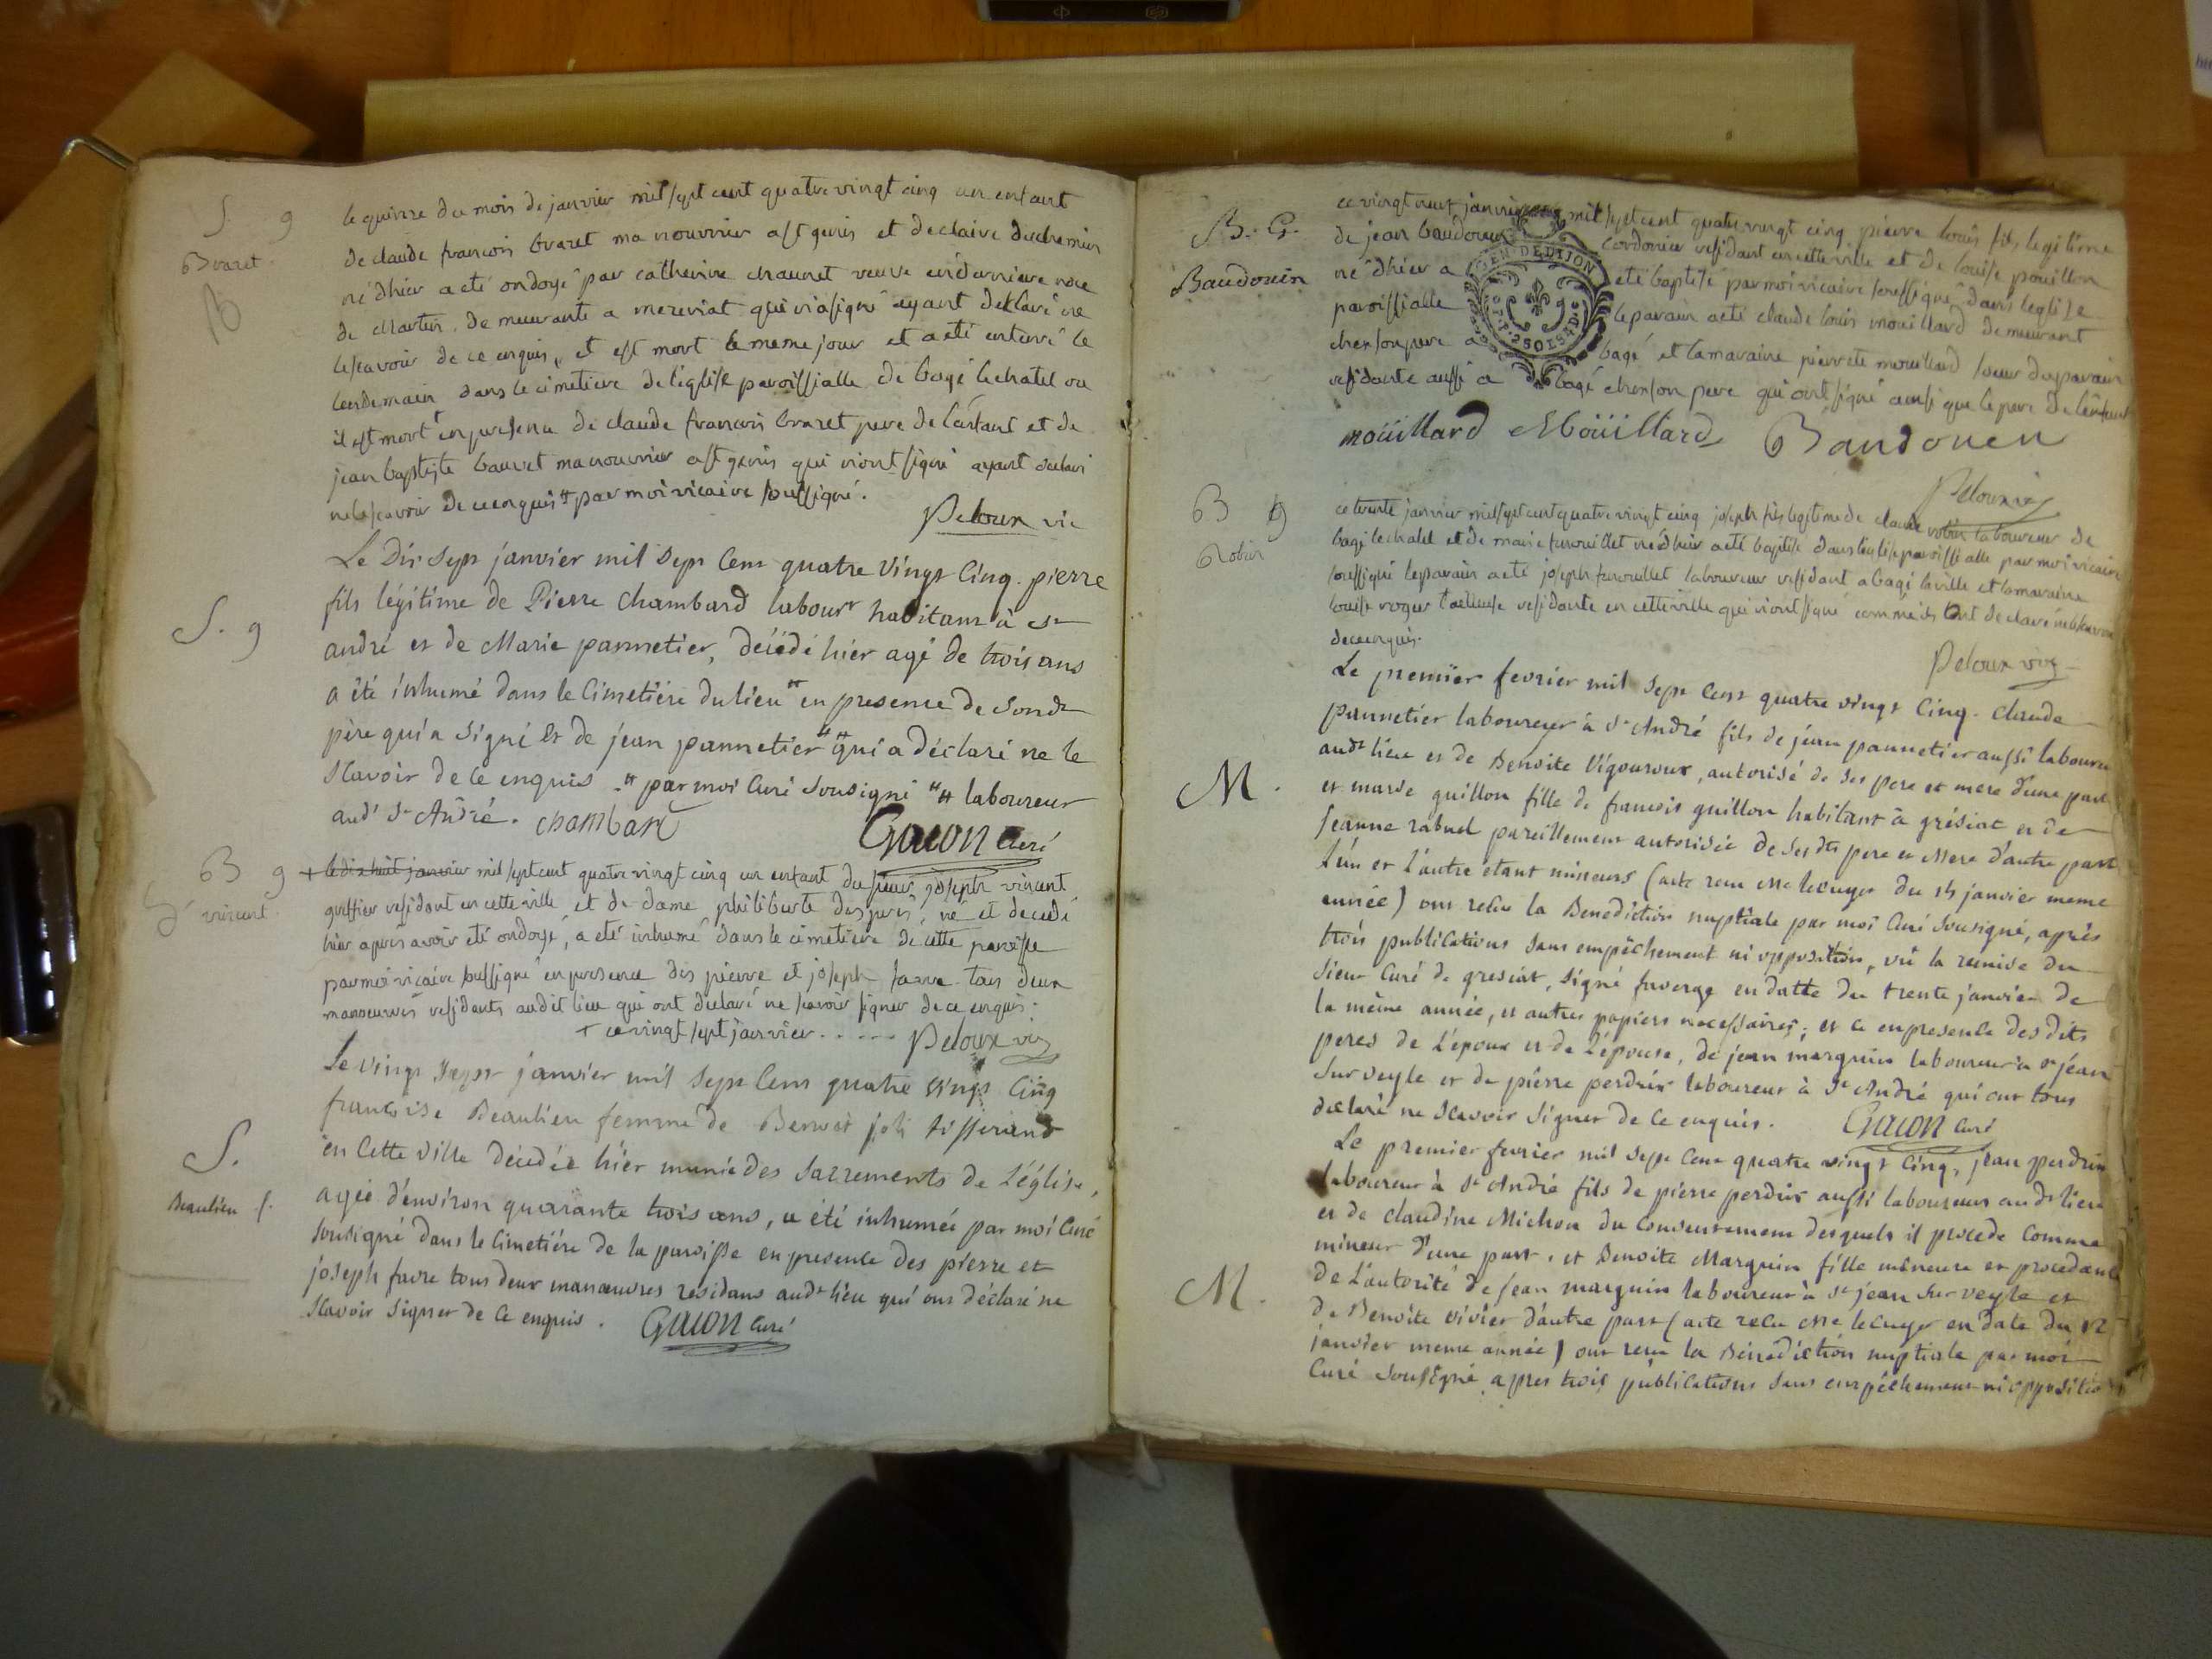 S. g
Bvaret
B
le quinze du mois de janvier mil sept cent quatre vingt cinq un enfant
de claude francois bvaret manouvrier a st genis et de claire duchemin
né d'hier a eté ondoyé par catherine chaunet veuve en derniere noce
de Martin demeurante a mezeriat qui n'a signé ayant declaré ne
le scavoir de ce enquis, et est mort le meme jour et a eté enterré le
lendemain dans le cimetiere de l'eglise paroissialle de bagé le chatel ou
il est mort en presence de claude francois bvaret pere de l'enfant et de
jean baptiste bauvet manouvrier a st genis qui n'ont signé ayant declaré
ne le scavoir de ce enquis # par moi vicaire soussigné.
Peloux vic
S. g
Le Dix sept janvier mil sept Cent quatre vingt Cinq. pierre
fils légitime de Pierre Chambard labourr habitant à St
andré et de Marie pannetier, décédé hier agé de trois ans
a été inhumé dans le Cimetiére du lieu # en presence de Sond
père qui a signé Et de jean pannetier ## qui a déclaré ne le
Scavoir de Ce enquis. # par moi Curé Sousigné ## laboureur
aud St André. Chambard
Gacon Curé
B g
S vincent
+ le dix huit janvier mil sept cent quatre vingt cinq un enfant du sieur joseph vincent
greffier residant en cette ville et de dame philiberte desprès, né et decedé
hier apres avoir eté ondoyé, a eté inhumé dans le cimetiere de cette paroisse
par moi vicaire soussigné en presence des pierre et joseph favre tous deux
manoeuvres residants audit lieu qui ont declaré ne scavoir signer de ce enquis.
+ ce vingt sept janvier.....
Peloux vic
S.
Beaulieu f.
Le vingt sept janvier mil sept Cent quatre vingt Cinq
francoise Beaulieu femme de Benoit joli tisserand
en Cette ville décédée hier munie des Sacrements de L'église,
agée d'environ quarante trois ans, a été inhumée par moi Curé
sousigné dans le Cimetiére de la paroisse en presence des pierre et
joseph favre tous deux manœuvres residans audt lieu qui ont déclaré ne
Scavoir Signer de Ce enquis.
Gacon Curé
B. G.
Baudouin
ce vingt neuf janvier mil sept cent quatre vingt cinq pierre louis fils legitime
de jean baudouin cordonier residant en cette ville et de louise pouillon
né d'hier a eté baptisé par moi vicaire soussigné dans l'eglise
paroissialle le parain a eté claude louis mouillard demeurant
chez son pere a bagé et la maraine pierrete mouillard soeur du parain
residante aussi a bagé chez son pere qui ont signé ainsi que le pere de l'enfant
GEN DE DIJON
moüillard Moüillard Baudouen
Peloux vic
B g
Robin
ce trente janvier mil sept cent quatre vingt cinq joseph fils legitime de claude robin laboureur de
bagé le chatel et de marie furouillet né d'hier a eté baptisé dans l'eglise paroissialle par moi vicaire
soussigné le parain a eté joseph furouillet laboureur residant a bagé la ville et la maraine
louise roger tailleuse residante en cette ville qui n'ont signé comme ils l'ont declaré ne le scavoir
de ce enquis.
Peloux vic
M.
Le premier fevrier mil Sept Cent quatre vingt Cinq. Claude
pannetier laboureur à St André fils de jean pannetier aussi laboureur
audt lieu et de Benoite Vigouroux, autorisé de ses pere et mere d'une part
et marie guillon fille de francois guillon habitant à grésiat et de
jeanne rabuel pareillement autorisée de ses dts pere et Mere d'autre part
L'un et L'autre étant mineurs (acte recu Me lecuyer du 14 janvier meme
année) ont recu la Benediction nuptiale par moi Curé Sousigné, aprés
trois publications sans empêchement ni opposition, vû la remise du
Sieur Curé de gresiat, signé faverge en datte du trente janvier de
la même année, et autres papiers necessaires, et ce en presence des dits
peres de L'epoux et de L'épouse, de jean marguin laboureur à st jean
Sur veyle et de pierre perdrix laboureur à St André qui ont tous
déclaré ne Scavoir Signer de Ce enquis.
Gacon Curé
M.
Le premier fevrier mil sept Cent quatre vingt Cinq, jean perdrix
laboureur à St André fils de pierre perdrix aussi laboureur audt lieu
et de claudine Michon du Consentement desquels il procede Comme
mineur d'une part, et Benoite Marguin fille mineure et procedante
de L'autorité de jean marguin laboureur à St jean Sur veyle et
de Benoite vivier d'autre part (acte recu Me lecuyer en date du 12
janvier meme année) ont recu la Bénédiction nuptiale par moi
Curé Sousigné apres trois publications Sans empêchement ni opposition